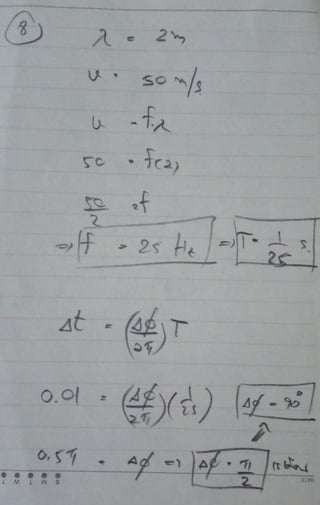 8
λ = 2m
v = 50 m/s
v = fλ
50 = f(2)
50/2 = f
⇒ f = 25 Hz ⇒ T = 1/25 s.
Δt = (Δϕ/2π) T
0.01 = (Δϕ/2π)(1/25) Δϕ = 90°
0.5π = Δϕ ⇒ Δϕ = π/2
S M T W T